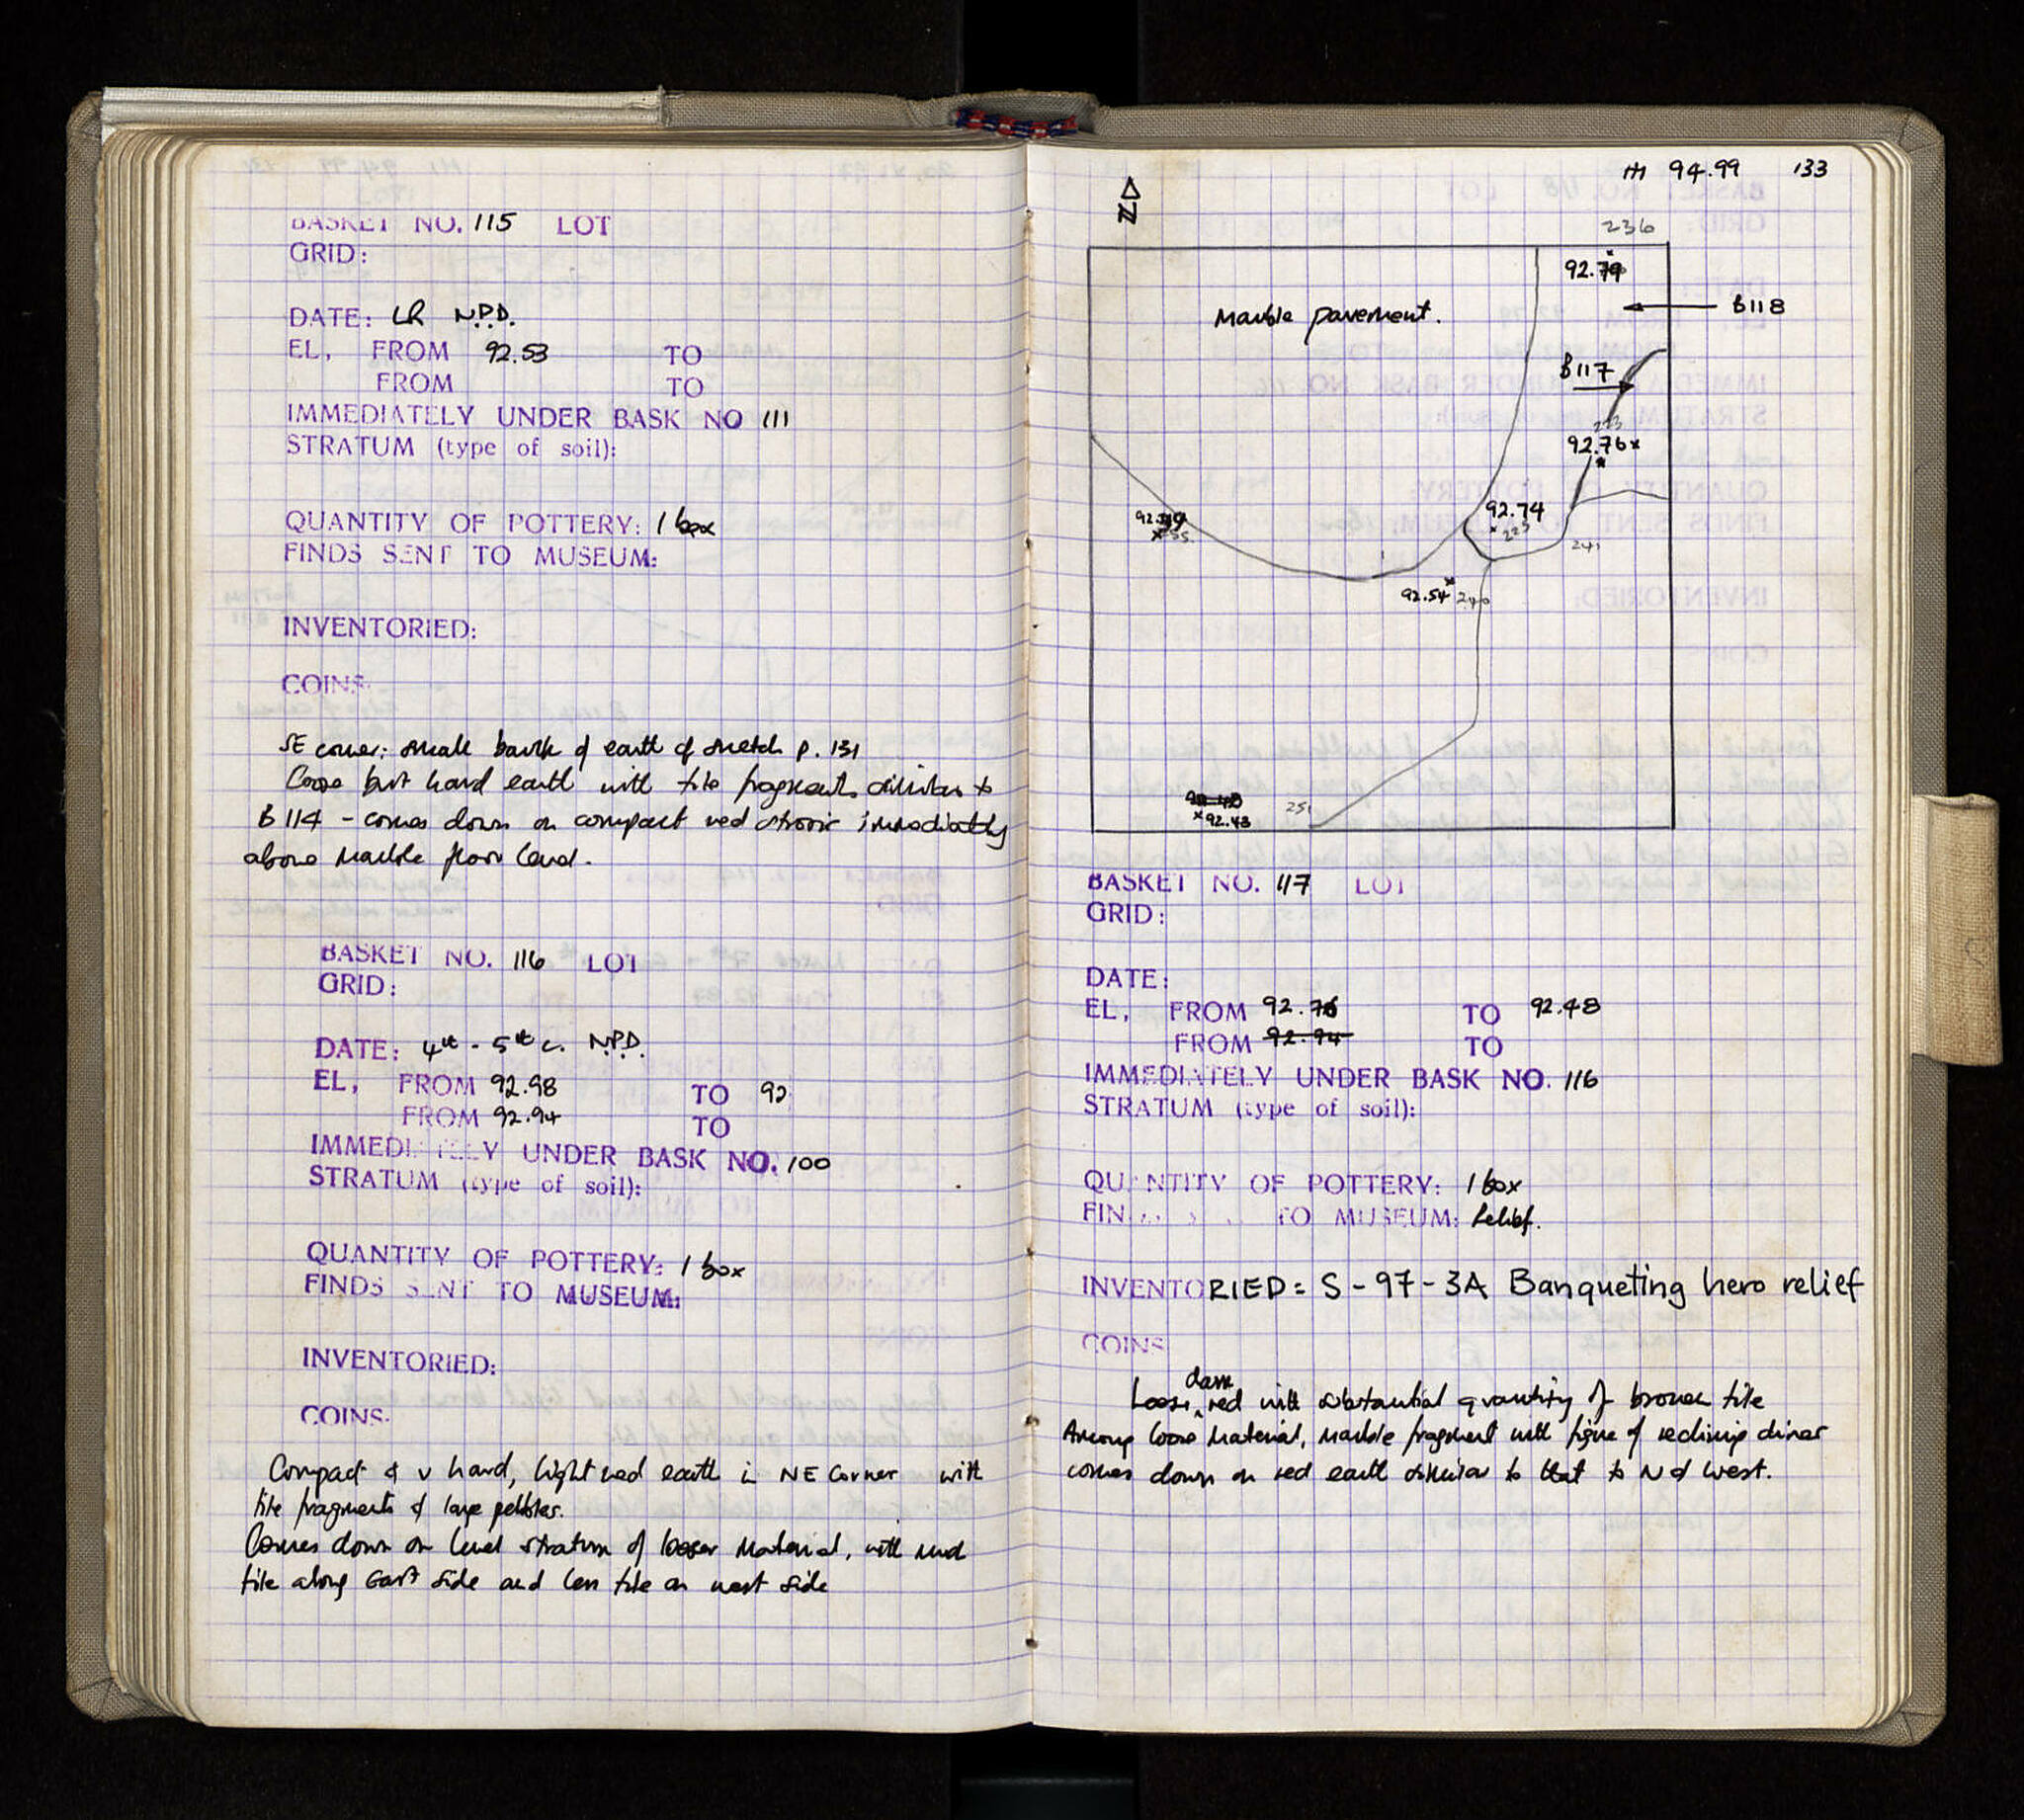 BASKET NO. 115 LOT
GRID:
DATE: LR N.P.D.
EL, FROM 92.53 TO
FROM TO
IMMEDIATELY UNDER BASK NO 111
STRATUM (type of soil):
QUANTITY OF POTTERY: 1 box
FINDS SENT TO MUSEUM:
INVENTORIED:
COINS
SE corner: small baulk of earth cf sketch p. 131
Loose but hard earth with tile fragments similar to
B 114 - comes down on compact red strosis immediately
above marble floor level.
BASKET NO. 116 LOT
GRID:
DATE: 4th - 5th c. N.P.D.
EL, FROM 92.98 TO 92
FROM 92.94 TO
IMMEDIATELY UNDER BASK NO. 100
STRATUM (type of soil):
QUANTITY OF POTTERY: 1 box
FINDS SENT TO MUSEUM:
INVENTORIED:
COINS.
Compact & v hard, light red earth in NE Corner with
tile fragments & large pebbles.
Comes down on level stratum of looser material, with mud
tile along East side and less tile on west side
HI 94.99 133
N
236
92.79
Marble pavement.
B118
B117
223
92.76
92.74
225
92.
235
241
92.54 240
92.43
251
BASKET NO. 117 LOT
GRID:
DATE:
EL, FROM 92.76 TO 92.48
FROM 92.94 TO
IMMEDIATELY UNDER BASK NO. 116
STRATUM (type of soil):
QUANTITY OF POTTERY: 1 box
FINDS SENT TO MUSEUM: Relief.
INVENTORIED: S-97-3A Banqueting hero relief
COINS
dark
Loose, red with substantial quantity of broken tile
Among loose material, marble fragment with figure of reclining diner
comes down on red earth similar to that to N & West.